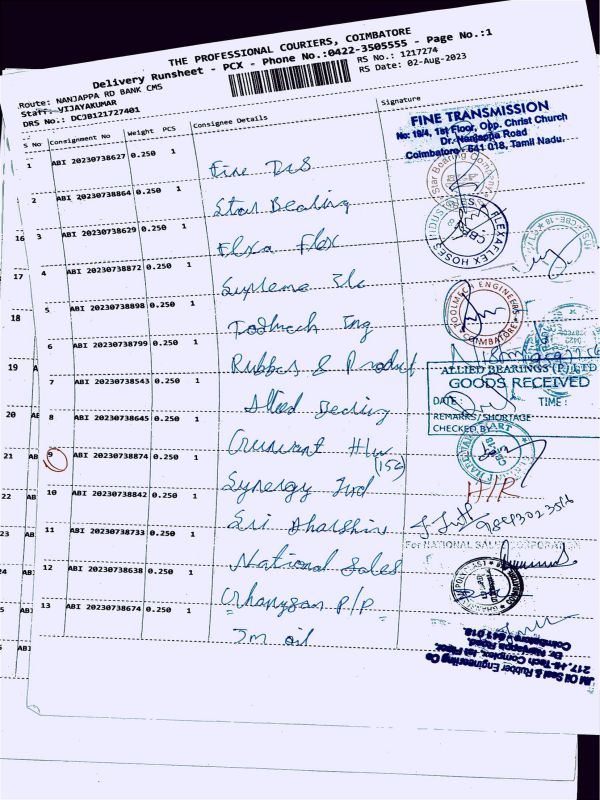 THE PROFESSIONAL COURIERS, COIMBATORE
Delivery Runsheet - PCX - Phone No.:0422-3505555 - Page No.:1
Route: NANJAPPA RD BANK CMS
RS No.: 1217274
Staff: VIJAYAKUMAR
RS Date: 02-Aug-2023
DRS No.: DCJB121727401
S No Consignment No Weight PCS Consignee Details Signature
1 ABI 20230738627 0.250 1 Fine
FINE TRANSMISSION
No: 19/4, 1st Floor, Opp. Christ Church
Dr. Nanjappa Road
Coimbatore - 641 018, Tamil Nadu.
2 ABI 20230738864 0.250 1 Star Bearing
Star Bearing Company
16 3 ABI 20230738629 0.250 1 Flxa Flex
FLEXAFLEX HOSES INDUSTRIES
17 4 ABI 20230738872 0.250 1 Supreme Ele
18 5 ABI 20230738898 0.250 1 Toolmech Eng
TOOLMECH ENGINEERS
COIMBATORE
6 ABI 20230738799 0.250 1 Rubber & Product
19 7 ABI 20230738543 0.250 1 Allied Bearing
ALLIED BEARINGS (P) LTD
GOODS RECEIVED
DATE: TIME:
REMARKS/SHORTAGE
CHECKED BY
20 AB 8 ABI 20230738645 0.250 1
21 AB 9 ABI 20230738874 0.250 1 Synergy Ind (156)
H/R
22 AB 10 ABI 20230738842 0.250 1 Sri Dharshini
23 AB 11 ABI 20230738733 0.250 1 National Sales
For NATIONAL SALES CORPORATION
12 ABI 20230738638 0.250 1 P/P
13 ABI 20230738674 0.250 1 Jm oil
JM Oil Seal & Rubber Engineering Co
217, Hi-Tech Complex, Ist Floor,
Dr. Nanjappa Road,
Coimbatore - 641 018.